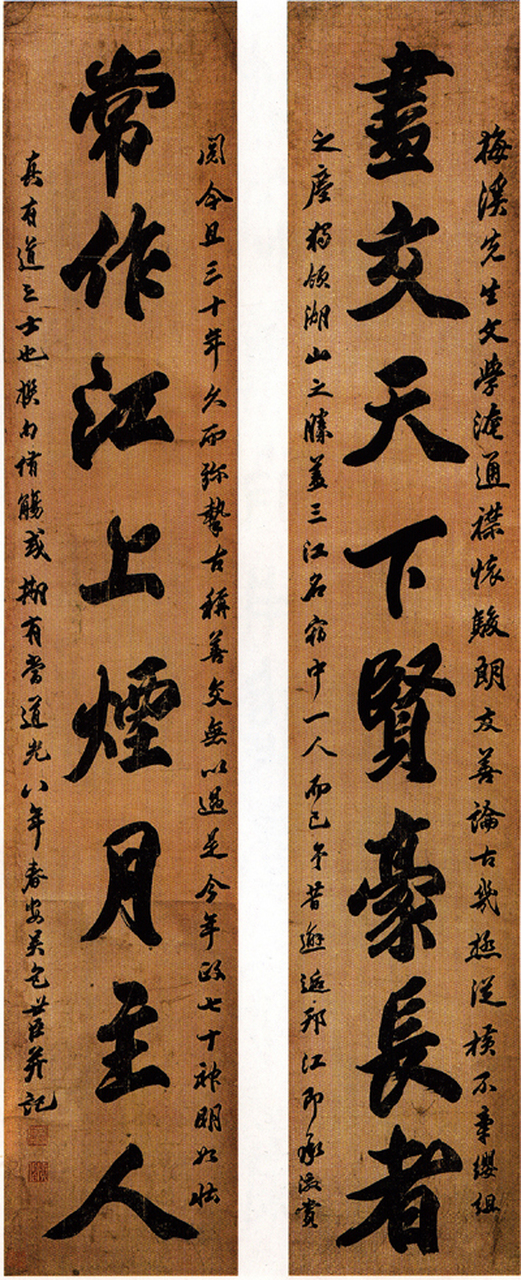 梅溪先生文學淹通襟懷駿朗友善論古幾極從橫不牽纓組
盡交天下賢豪長者
之塵獨領湖山之勝蓋三江名宿中一人而已予昔邂逅邗江即承激賞
閱今且三十年久而弥摯古稱善交無以過是今年政七十神明如壯
常作江上煙月主人
真有道之士也撰句侑觴或有當道光八年春安吳包世臣并記